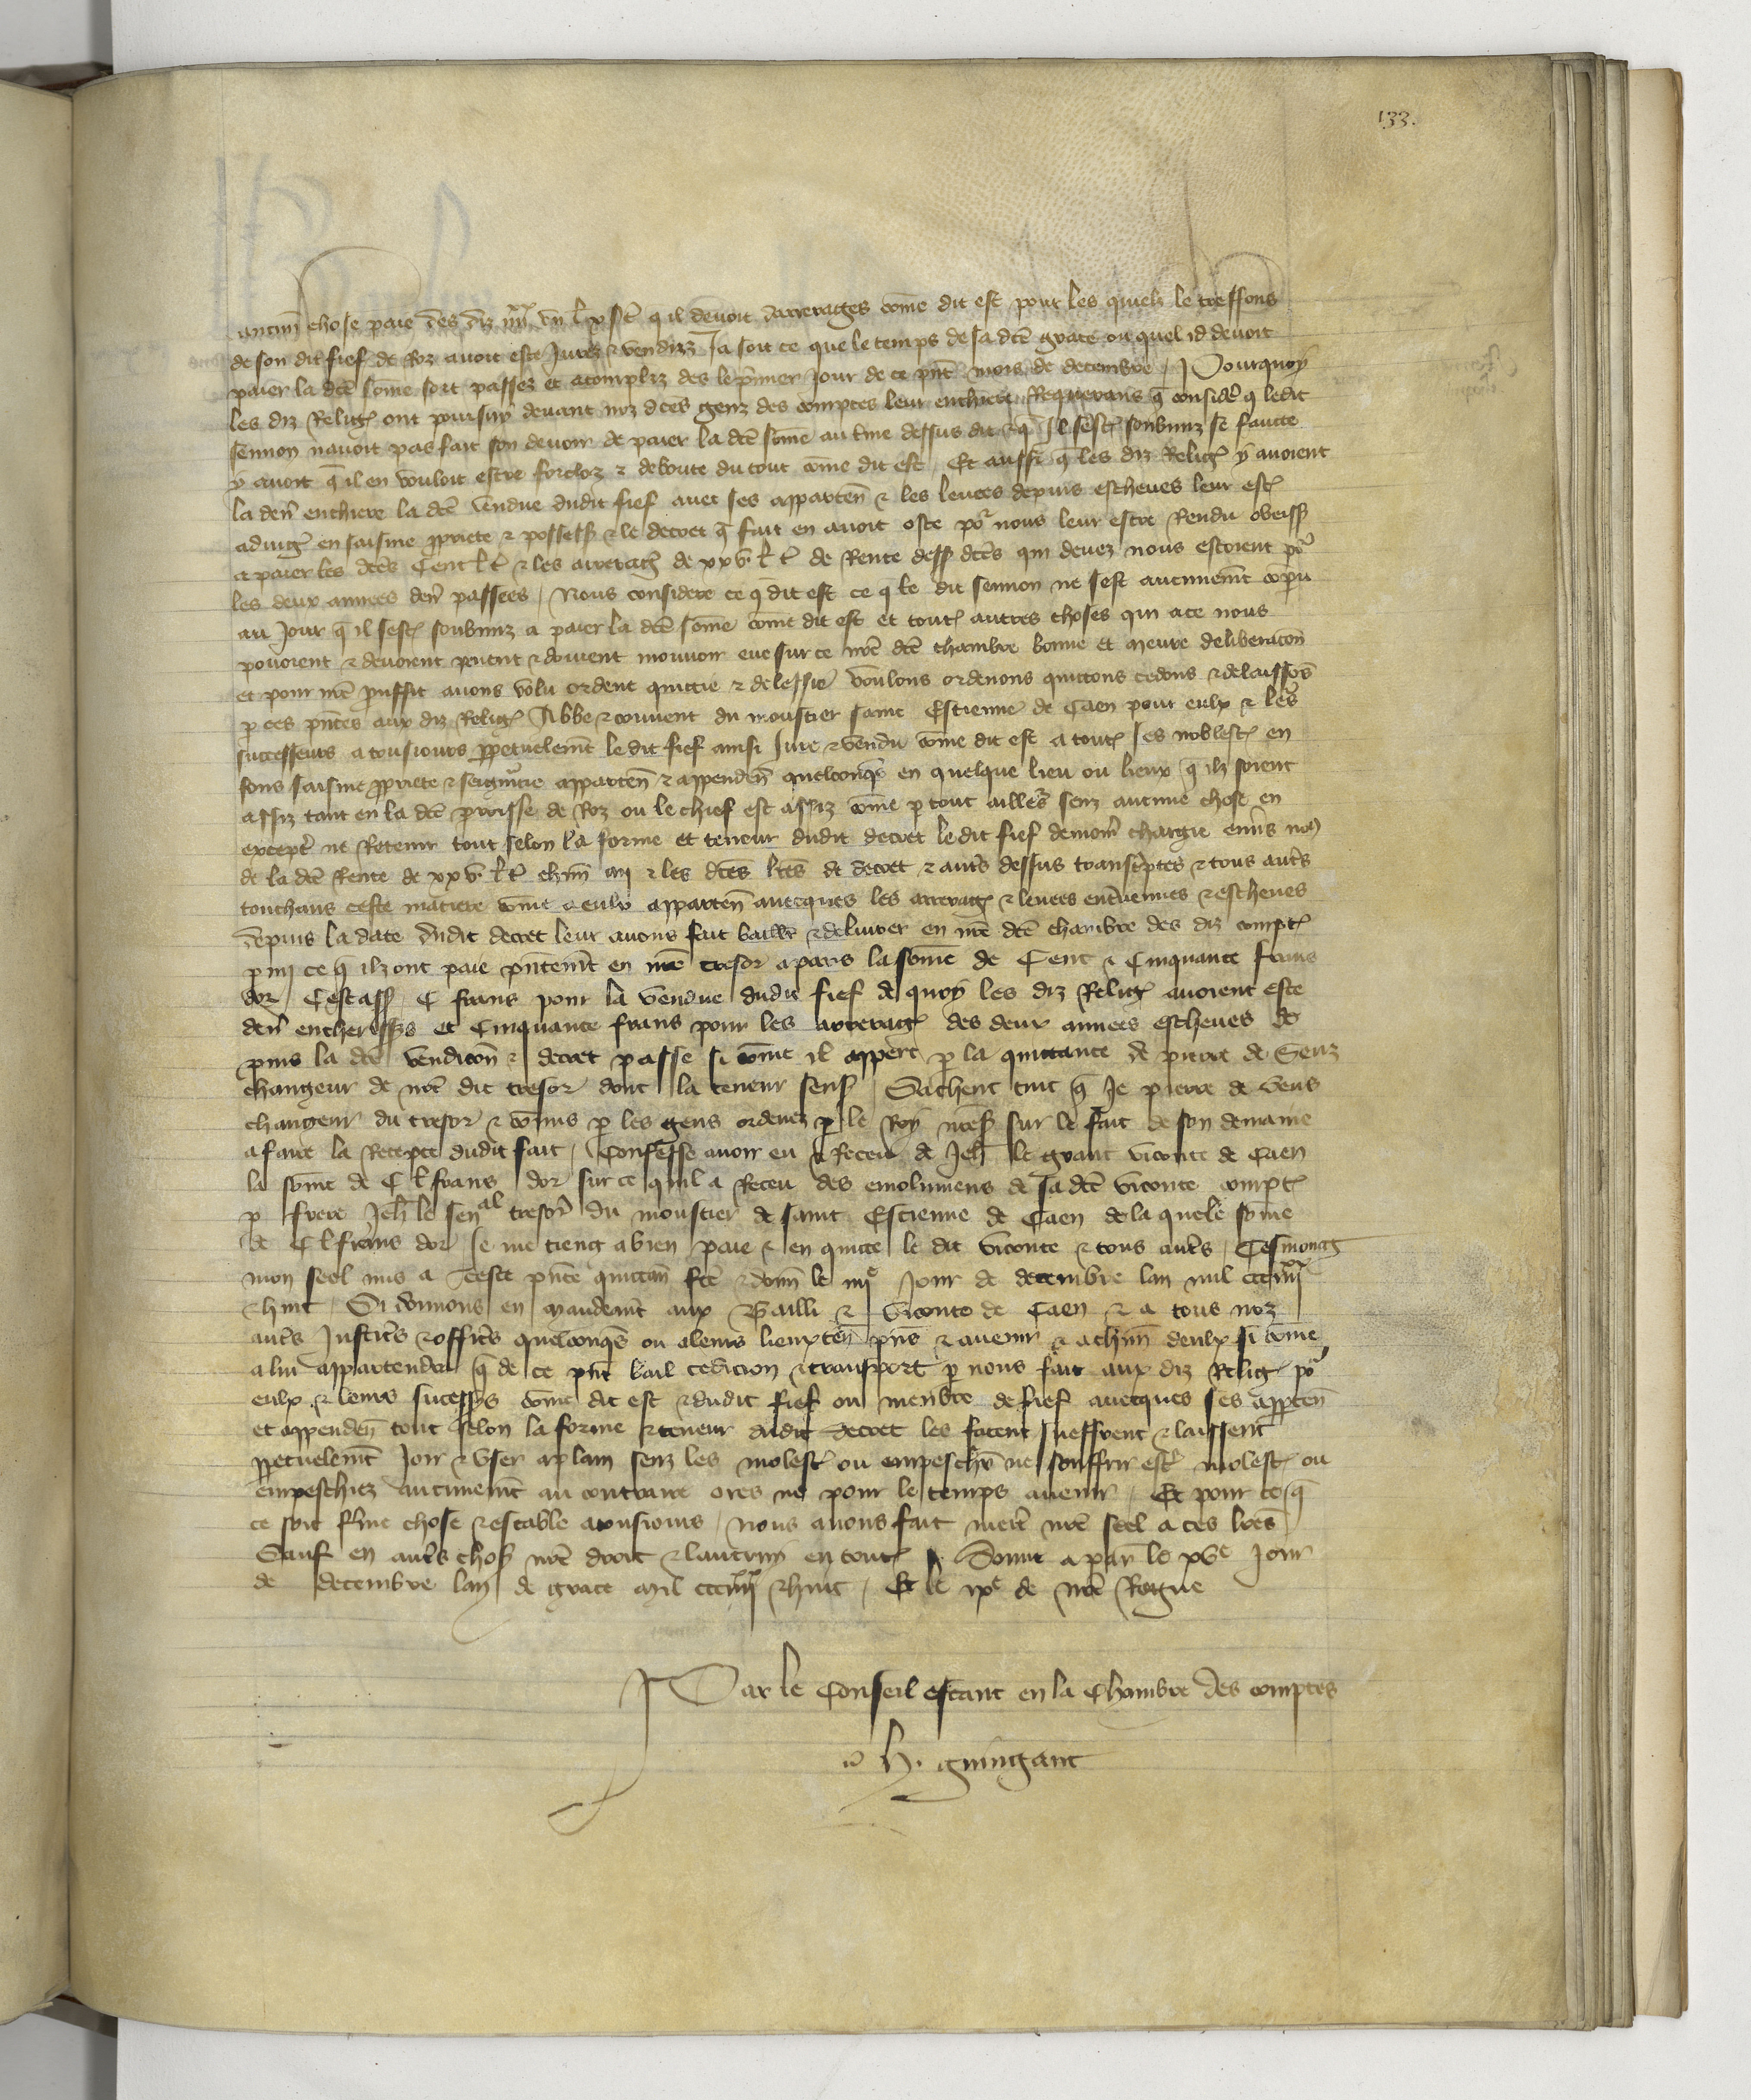 133.
aucune chose paie des diz l. t. q il devoit darrerages come dit est pour les quielx le treffons
de son dit fief de Roz avoit este Jurez & venduz Ja soit ce que le temps de sa dce grace ou quel il devoit
paier la dce some soit passez et acompliz des le pmier Jour de ce pnt mois de decembre / Pourquoy
les diz Relig ont poursuy devant noz dces genz des comptes leur enchiere Requerans q consider q ledit
sennon navoit pas fait son devoir de paier la dce some au tme dessus dit & q Il sest soubmiz se faute
y avoit q il en vouloit estre forcloz & deboute du tout come dit est / Et aussi q les diz Relig y avoient
la den enchiere la dce vendue dudit fief avec ses apparten & les levees depuis escheues leur est
adiug en saisine ppriete & possess & le decret q fait en avoit este por nous leur estre Rendu obeiss
a paier les dces Cent l t & les arrerag de xxv l t de Rente dess dces qui deuez nous estoient por
les deux annees den passees / Nous considere ce q dit est ce q le dit sennon ne sest aucunemt compu
au Jour q il sest soubmiz a paier la dce some come dit est et tout autres choses qui ace nous
povoient & devoient peuent & doivent mouvoir eue sur ce nre dce chambre bonne et meure deliberacon
et pour nre prouffit avons volu ordene quictie & delessie voulons ordenons quictons cedons & delaissos
p ces pntes aux diz Relig Abbe & couvent du moustier saint Estienne de Caen pour eulx & les
successeurs a tousiours ppetuelemt le dit fief ainsi Jure & vendu come dit est a tout ses noblest en
fons saisine ppriete & seignurie apparten & appenden quelconqs en quelque lieu ou lieux q ilz soient
assiz tant en la dce proisse de Roz ou le chief est assiz come p tout ailles senz aucune chose en
except ne Retenir tout selon la forme et teneur dudit decret le dit fief demour chargie envs nos
de la dce Rente de xxv l t chun an & les dces lres de decret & autres dessus transcptes & tous auts
touchans ceste matiere come a eulx apparten avecques les arrerag & levees entrevenues & escheues
depuis la date dudit decret leur avons fait baillr & delivrer en nre dce chambre des diz compt
pmi ce q ilz ont paie pntemt en nre tresor a paris la somme de Cent & Cinquante frans
dor / Cest ass / C frans pour la vendue dudit fief de quoy les diz Relig avoient este
den encherisss et Cinquante frans pour les arrerag des deux annees escheues de
puis la dce vendicon & decret passe si come il appert p la quittance de pierre de Senz
changeur de nre dit tresor dont la teneur sens / Sachent tuit q Je pierre de Sens
changeur du tresor & comis p les gens ordenez p le Roy nres sur le fait de son demaine
a faire la Recepte dudit fait / Confesse avoir eu & Receu de Jeh le grant viconte de Caen
la some de C l frans dor sur ce quil a Receu des emolumens de sa dce viconte compt
p frere Jeh le senal tresor du moustier de saint Estienne de Caen de la quele some
de C l frans dor Je me tieng abien paie & en quicte le dit viconte & tous auts / Tesmoing
mon seel mis a ceste pnte quictan fce & donn le iiie Jour de decembre lan mil ccciiiixx
& huit / Si donnons en mandemt aux Bailli & Viconte de Caen & a tous noz
auts Justics & offics quelconqs ou aleurs lieuxten pns & avenir & achun deulx si come
a lui appartendra q de ce pnt bail cedicion & transport p nous fait aux diz Relig por
eulx & leurs sucesss come dit est & dudit fief ou menbre de fief avecques ses apprten
et appenden tout selon la forme & teneur dudit decret les facent sueffrent & laissent
ppetuelemt Joir & user aplain senz les molest ou empeschr ne souffrir est molest ou
empeschiez aucunemt au contraire ores ne pour le temps avenir / Et pour ce q
ce soit ferme chose & estable atousiours / nous avons fait mett nre seel a ces lres
Sauf en auts chos nre droit & lautruy en tout / Donne a par le xve Jour
de decembre lan de grace mil ccciiiixx & huit / Et le ixe de nre Regne
Par le Conseil estant en la Chambre des comptes
H. guingant